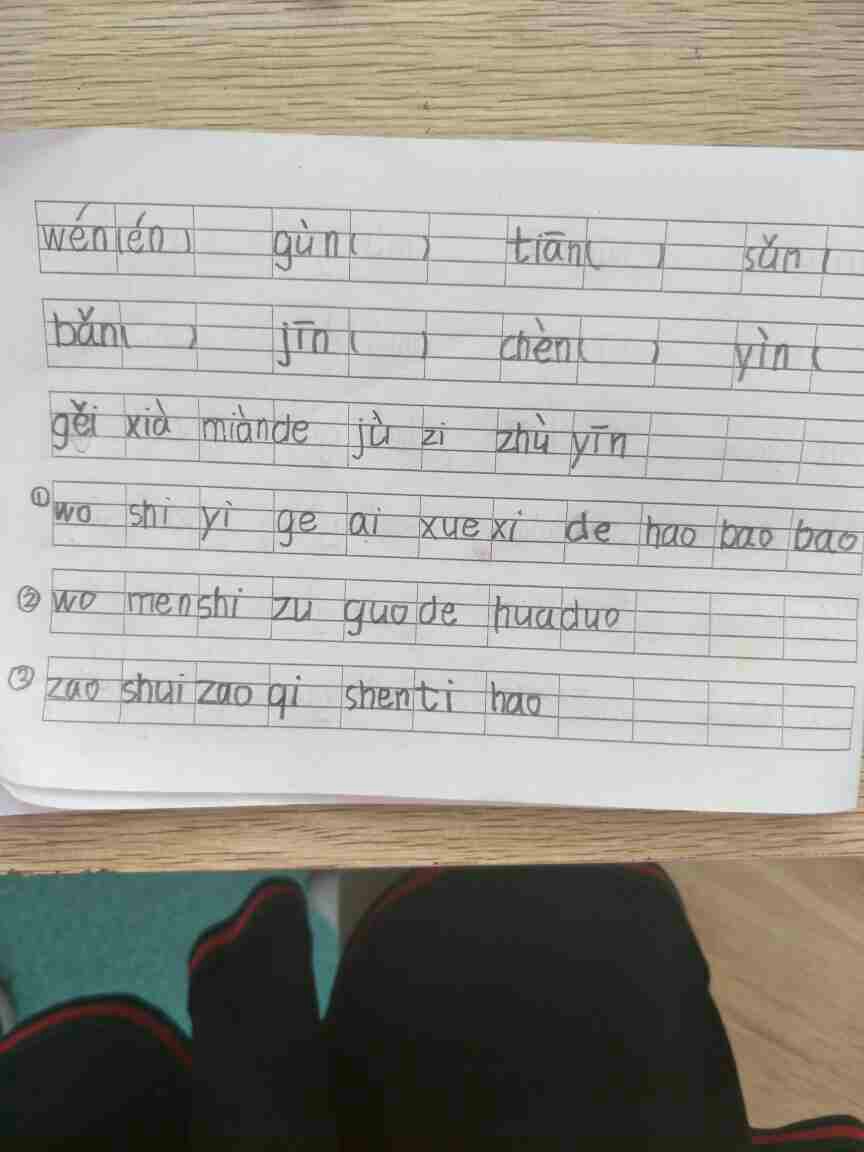 wén(én) gùn( ) tiān( ) sǎn(
bǎn( ) jīn( ) chèn( ) yìn(
gěi xià miànde jù zi zhù yīn
①wo shi yi ge ai xue xi de hao bao bao
②wo men shi zu guo de hua duo
③zao shui zao qi shen ti hao